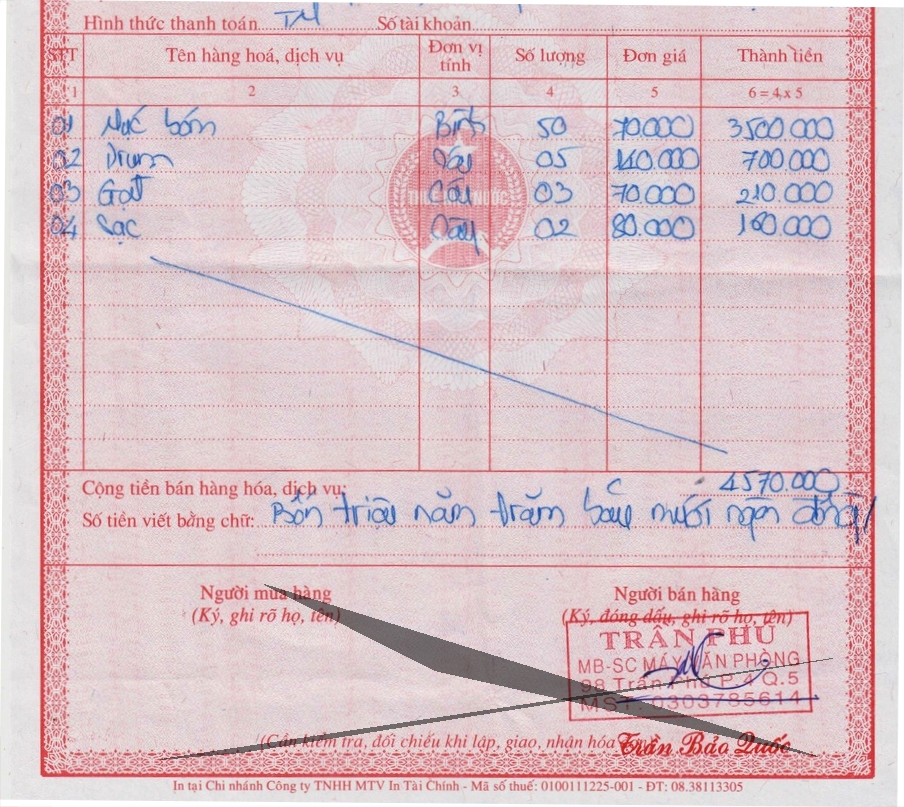 Hình thức thanh toán TM Số tài khoản
STT Tên hàng hoá, dịch vụ Đơn vị tính Số lượng Đơn giá Thành tiền
1 2 3 4 5 6 = 4 x 5
01 Mực bơm Bình 50 70.000 3500.000
02 Drum Cây 05 140.000 700.000
03 Gạt Cây 03 70.000 210.000
04 Sạc Cây 02 80.000 160.000
Cộng tiền bán hàng hóa, dịch vụ: 4570.000
Số tiền viết bằng chữ: Bốn triệu năm trăm bảy mươi ngàn đồng
Người mua hàng Người bán hàng
(Ký, ghi rõ họ, tên) (Ký, đóng dấu, ghi rõ họ, tên)
TRÂN PHÚ
MB-SC MÁY VĂN PHÒNG
98 Trần Phú P.4 Q.5
MST: 0303785614
(Cần kiểm tra, đối chiếu khi lập, giao, nhận hóa
Trần Bảo Quốc
In tại Chi nhánh Công ty TNHH MTV In Tài Chính - Mã số thuế: 0100111225-001 - ĐT: 08.38113305